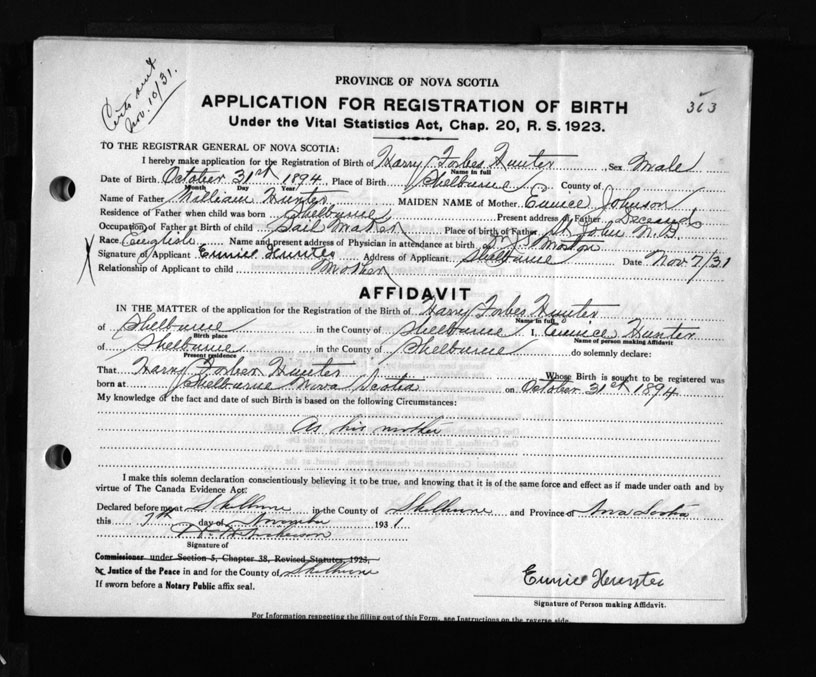 Certs sent
Nov. 10/31.
363
PROVINCE OF NOVA SCOTIA
APPLICATION FOR REGISTRATION OF BIRTH
Under the Vital Statistics Act, Chap. 20, R. S. 1923.
TO THE REGISTRAR GENERAL OF NOVA SCOTIA:
I hereby make application for the Registration of Birth of Harry Forbes Hunter Sex Male
Name in full
Date of Birth October 31st 1894 Place of Birth Shelburne County of
Month Day Year
Name of Father William Hunter MAIDEN NAME of Mother Eunice Johnson
Residence of Father when child was born Shelburne Present address of Father Deceased
Occupation of Father at Birth of child Sail Maker Place of Birth of Father St John N.B.
Race English Name and present address of Physician in attendance at birth Morton
X Signature of Applicant Eunice Hunter Address of Applicant Shelburne Date Nov 7/31
Relationship of Applicant to child Mother
AFFIDAVIT
IN THE MATTER of the application for the Registration of the Birth of Harry Forbes Hunter
Name in full
of Shelburne in the County of Shelburne I, Eunice Hunter
Birth place Name of person making Affidavit
of Shelburne in the County of Shelburne do solemnly declare:
Present residence
That Harry Forbes Hunter Whose Birth is sought to be registered was
born at Shelburne Nova Scotia on October 31st 1894
My knowledge of the fact and date of such Birth is based on the following Circumstances:
As his mother
I make this solemn declaration conscientiously believing it to be true, and knowing that it is of the same force and effect as if made under oath and by
virtue of The Canada Evidence Act:
Declared before me at Shelburne in the County of Shelburne and Province of Nova Scotia
this 7th day of November 1931
Signature of
Commissioner under Section 5, Chapter 38, Revised Statutes, 1923,
or Justice of the Peace in and for the County of Shelburne
If sworn before a Notary Public affix seal.
Eunice Hunter
Signature of Person making Affidavit.
For Information respecting the filling out of this Form, see Instructions on the reverse side.